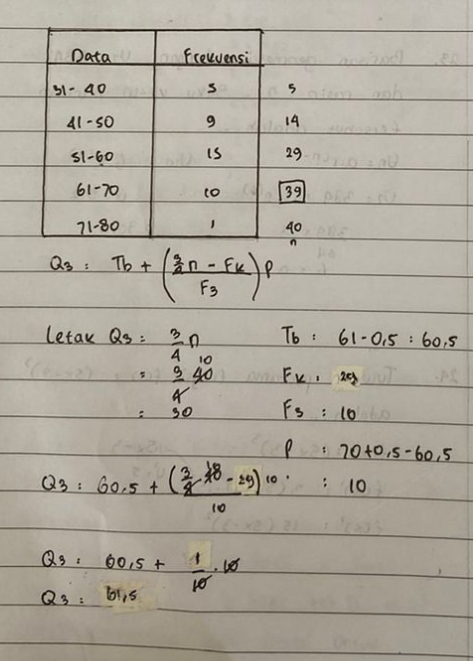 Data Frekuensi
31-40 5 5
41-50 9 14
51-60 15 29
61-70 10 39
71-80 1 40
n
Q3 : Tb + (3/4 n - Fk / F3) P
Letak Q3 : 3/4 n Tb : 61-0,5 : 60,5
= 3/4 40 10 Fk : 29
= 30 F3 : 10
P : 70+0,5-60,5
Q3 : 60,5 + (3/4 . 40 10 - 29 / 10) 10 : 10
Q3 : 60,5 + 1/10 . 10
Q3 : 61,5